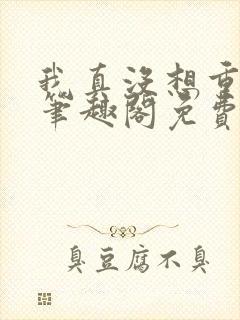 我真没想重
笔趣阁免费
臭豆腐不臭